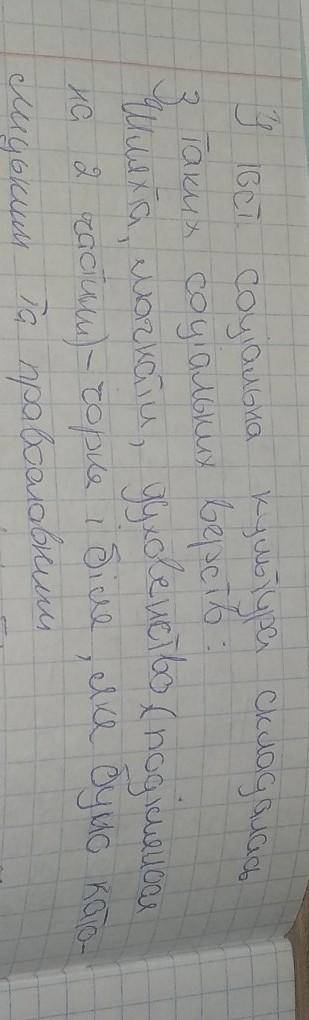 У 16ст. соціальна культура складалась
з таких соціальних верств:
Шляхта, магнати, духовенство (поділялося
на 2 частини) - чорне і біле, яке було като-
лицьким та православним